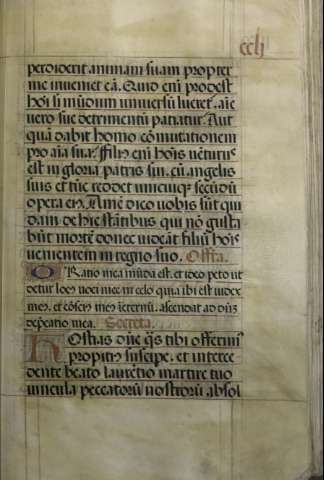 cclj
perdiderit animam suam propter
me inueniet eā. Quid enī prodest
hōi si mūdum uniuersū lucret̄, aīe
uero sue detrimentū patiatur. Aut
quā dabit homo cōmutationem
pro aīa sua. Filiꝰ enī hōis uēturꝰ
est in gloria patris sui, cū angelis
suis et tūc reddet unicuiqꝫ secūdū
opera eiꝰ. Amē dico uobis sūt qui
dam de hic stātibus qui nō gusta
būt mortē donec uideāt filiū hōis
uenientem in regno suo. Offᵃ.
Oratio mea mūda est. et ideo peto ut
detur locꝰ uoci mee in celo quia ibi est iudex
meꝰ. et cōsciꝰ meꝰ ī excelsis. ascendat ad dūm
dep̄catio mea. Secreta.
Hostias dn̄e q̄s tibi offerimꝰ
propitiꝰ suscipe. et interce
dente beato laurētio martire tuo
uincula peccatorū nostrorū absol